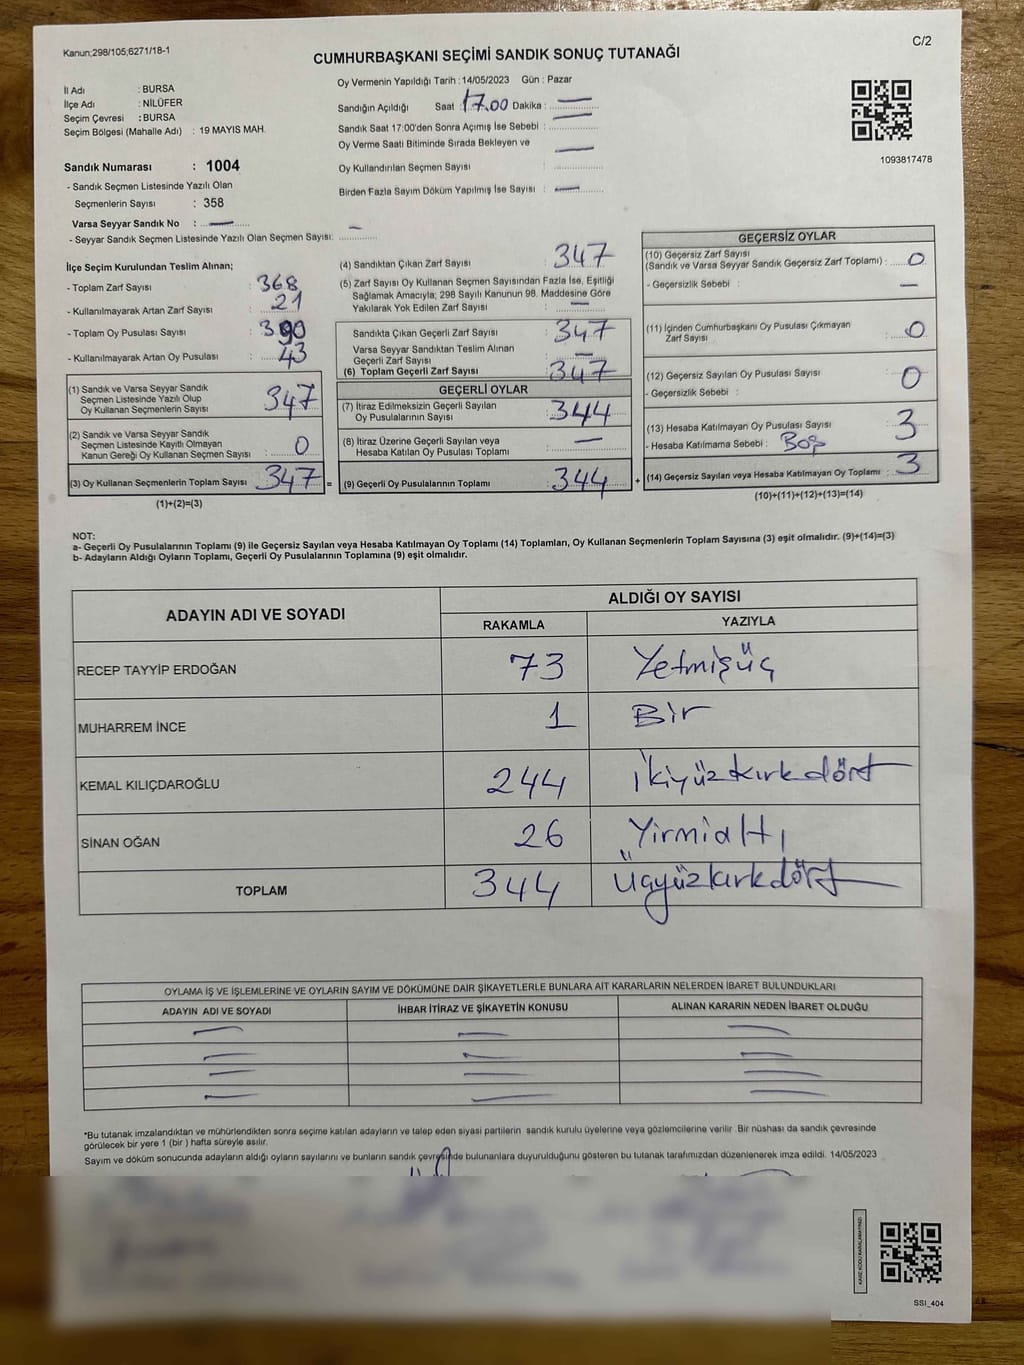 Kanun;298/105;6271/18-1
C/2
CUMHURBAŞKANI SEÇİMİ SANDIK SONUÇ TUTANAĞI
İl Adı : BURSA
İlçe Adı : NİLÜFER
Seçim Çevresi : BURSA
Seçim Bölgesi (Mahalle Adı) : 19 MAYIS MAH.
Sandık Numarası : 1004
- Sandık Seçmen Listesinde Yazılı Olan
Seçmenlerin Sayısı : 358
Varsa Seyyar Sandık No : —
- Seyyar Sandık Seçmen Listesinde Yazılı Olan Seçmen Sayısı: —
Oy Vermenin Yapıldığı Tarih : 14/05/2023 Gün : Pazar
Sandığın Açıldığı Saat : 17.00 Dakika : —
Sandık Saat 17:00'den Sonra Açımış İse Sebebi : —
Oy Verme Saati Bitiminde Sırada Bekleyen ve —
Oy Kullandırılan Seçmen Sayısı :
Birden Fazla Sayım Döküm Yapılmış İse Sayısı : —
1093817478
İlçe Seçim Kurulundan Teslim Alınan;
- Toplam Zarf Sayısı : 368
- Kullanılmayarak Artan Zarf Sayısı : 21
- Toplam Oy Pusulası Sayısı : 390
- Kullanılmayarak Artan Oy Pusulası : 43
(1) Sandık ve Varsa Seyyar Sandık
Seçmen Listesinde Yazılı Olup
Oy Kullanan Seçmenlerin Sayısı : 347
(2) Sandık ve Varsa Seyyar Sandık
Seçmen Listesinde Kayıtlı Olmayan
Kanun Gereği Oy Kullanan Seçmen Sayısı : 0
(3) Oy Kullanan Seçmenlerin Toplam Sayısı : 347 =
(1)+(2)=(3)
(4) Sandıktan Çıkan Zarf Sayısı : 347
(5) Zarf Sayısı Oy Kullanan Seçmen Sayısından Fazla İse, Eşitliği
Sağlamak Amacıyla; 298 Sayılı Kanunun 98. Maddesine Göre
Yakılarak Yok Edilen Zarf Sayısı : —
Sandıkta Çıkan Geçerli Zarf Sayısı : 347
Varsa Seyyar Sandıktan Teslim Alınan
Geçerli Zarf Sayısı : —
(6) Toplam Geçerli Zarf Sayısı : 347
GEÇERLİ OYLAR
(7) İtiraz Edilmeksizin Geçerli Sayılan
Oy Pusulalarının Sayısı : 344
(8) İtiraz Üzerine Geçerli Sayılan veya
Hesaba Katılan Oy Pusulası Toplamı : —
(9) Geçerli Oy Pusulalarının Toplamı : 344 +
GEÇERSİZ OYLAR
(10) Geçersiz Zarf Sayısı
(Sandık ve Varsa Seyyar Sandık Geçersiz Zarf Toplamı) : 0
- Geçersizlik Sebebi : —
(11) İçinden Cumhurbaşkanı Oy Pusulası Çıkmayan
Zarf Sayısı : 0
(12) Geçersiz Sayılan Oy Pusulası Sayısı : 0
- Geçersizlik Sebebi :
(13) Hesaba Katılmayan Oy Pusulası Sayısı : 3
- Hesaba Katılmama Sebebi : Boş
(14) Geçersiz Sayılan veya Hesaba Katılmayan Oy Toplamı : 3
(10)+(11)+(12)+(13)=(14)
NOT:
a- Geçerli Oy Pusulalarının Toplamı (9) ile Geçersiz Sayılan veya Hesaba Katılmayan Oy Toplamı (14) Toplamları, Oy Kullanan Seçmenlerin Toplam Sayısına (3) eşit olmalıdır. (9)+(14)=(3)
b- Adayların Aldığı Oyların Toplamı, Geçerli Oy Pusulalarının Toplamına (9) eşit olmalıdır.
ADAYIN ADI VE SOYADI
ALDIĞI OY SAYISI
RAKAMLA YAZIYLA
RECEP TAYYİP ERDOĞAN 73 Yetmişüç
MUHARREM İNCE 1 Bir
KEMAL KILIÇDAROĞLU 244 ikiyüzkırkdört
SİNAN OĞAN 26 Yirmialtı
TOPLAM 344 Üçyüzkırkdört
OYLAMA İŞ VE İŞLEMLERİNE VE OYLARIN SAYIM VE DÖKÜMÜNE DAİR ŞİKAYETLERLE BUNLARA AİT KARARLARIN NELERDEN İBARET BULUNDUKLARI
ADAYIN ADI VE SOYADI İHBAR İTİRAZ VE ŞİKAYETİN KONUSU ALINAN KARARIN NEDEN İBARET OLDUĞU
*Bu tutanak imzalandıktan ve mühürlendikten sonra seçime katılan adayların ve talep eden siyasi partilerin sandık kurulu üyelerine veya gözlemcilerine verilir. Bir nüshası da sandık çevresinde
görülecek bir yere 1 (bir) hafta süreyle asılır.
Sayım ve döküm sonucunda adayların aldığı oyların sayılarını ve bunların sandık çevresinde bulunanlara duyurulduğunu gösteren bu tutanak tarafımızdan düzenlenerek imza edildi. 14/05/2023
SSI_404